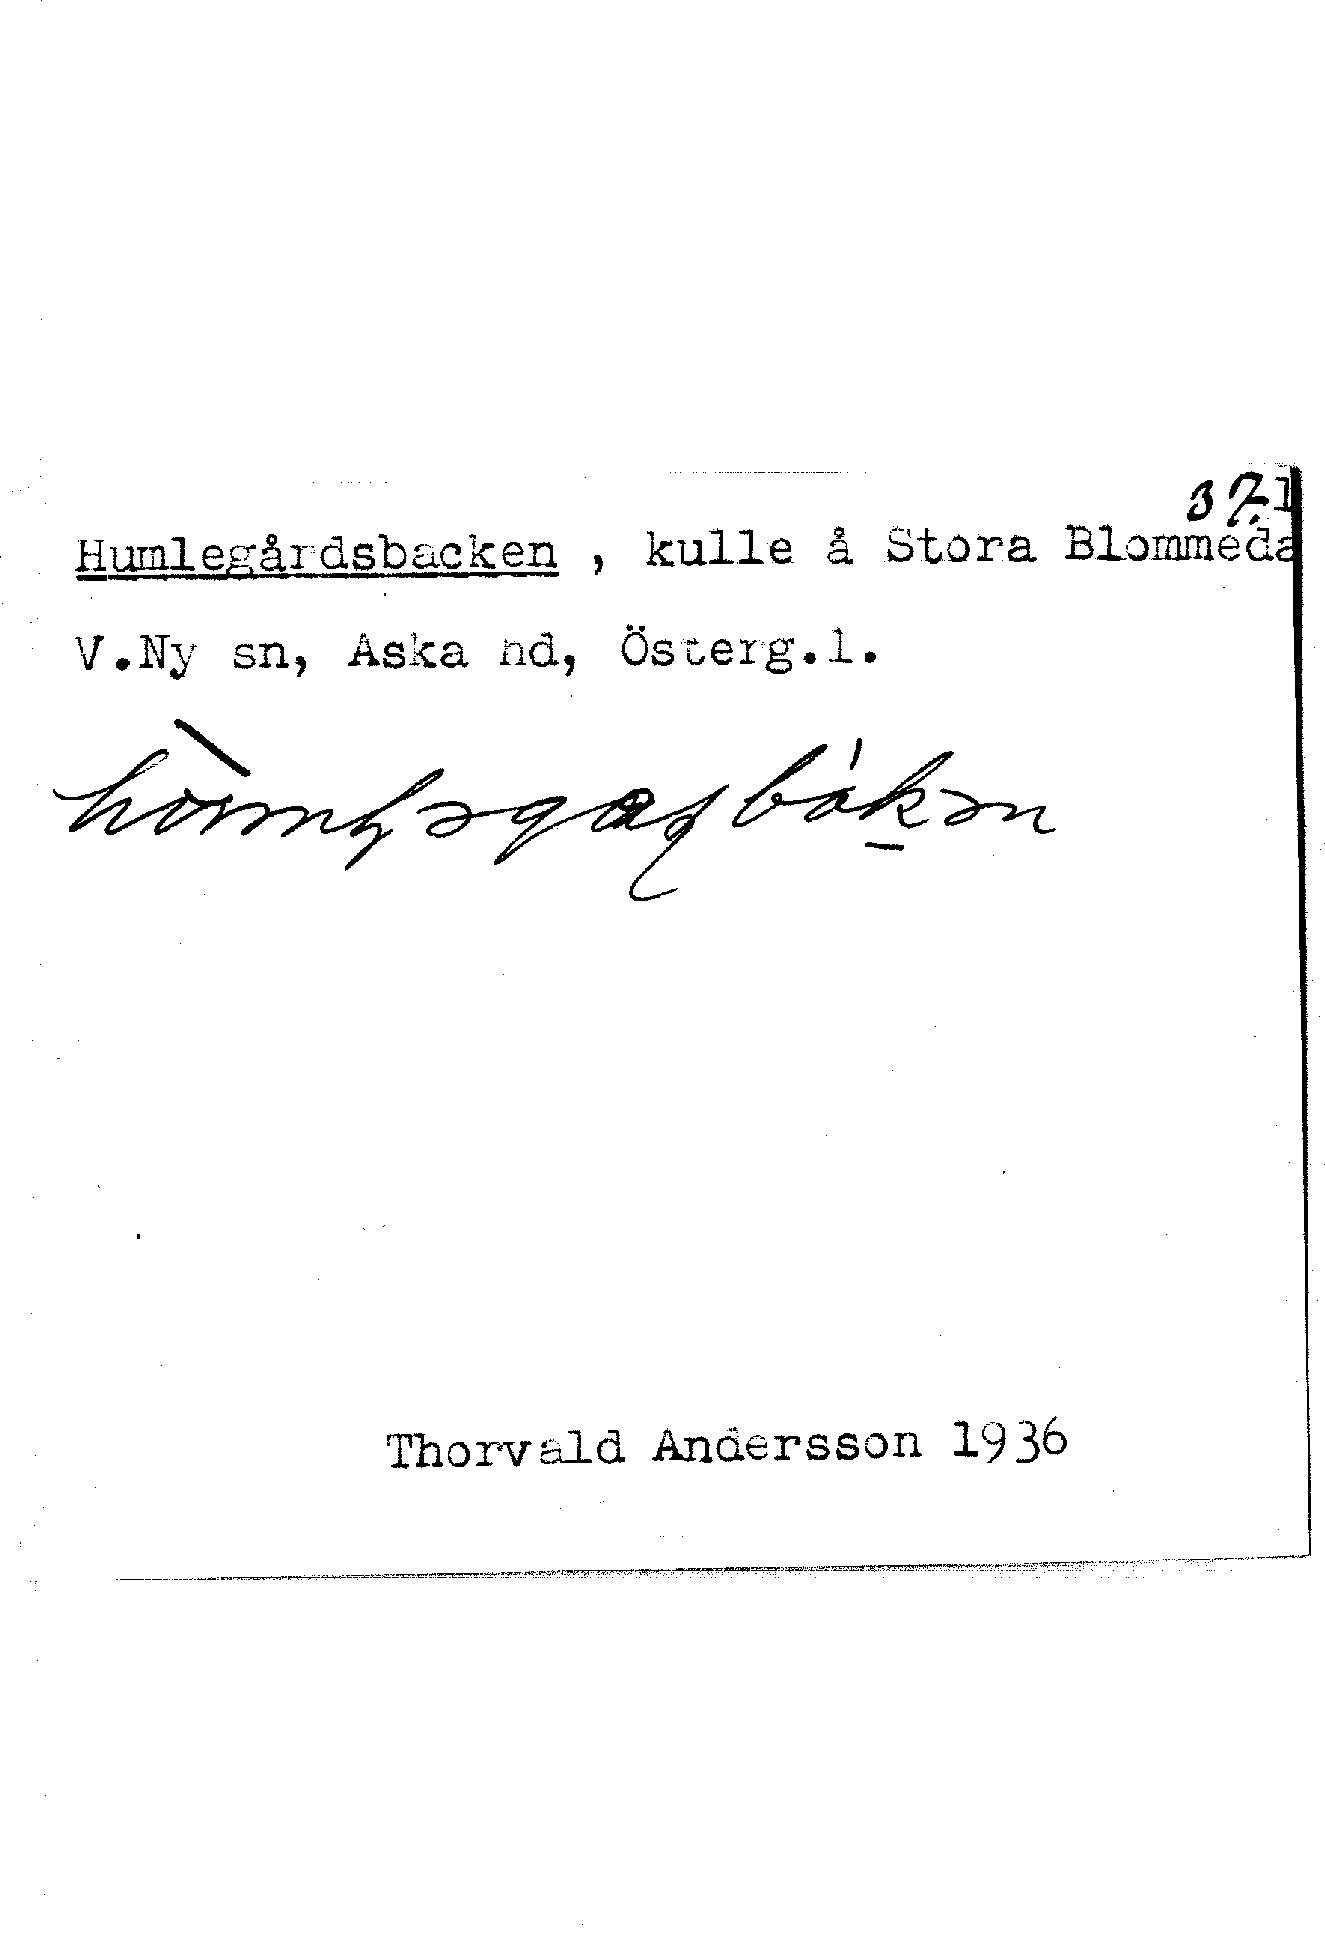 37.1
Humlegårdsbacken , kulle å Stora Blommeda
V.Ny sn, Aska hd, Österg.l.
Thorvald Andersson 1936